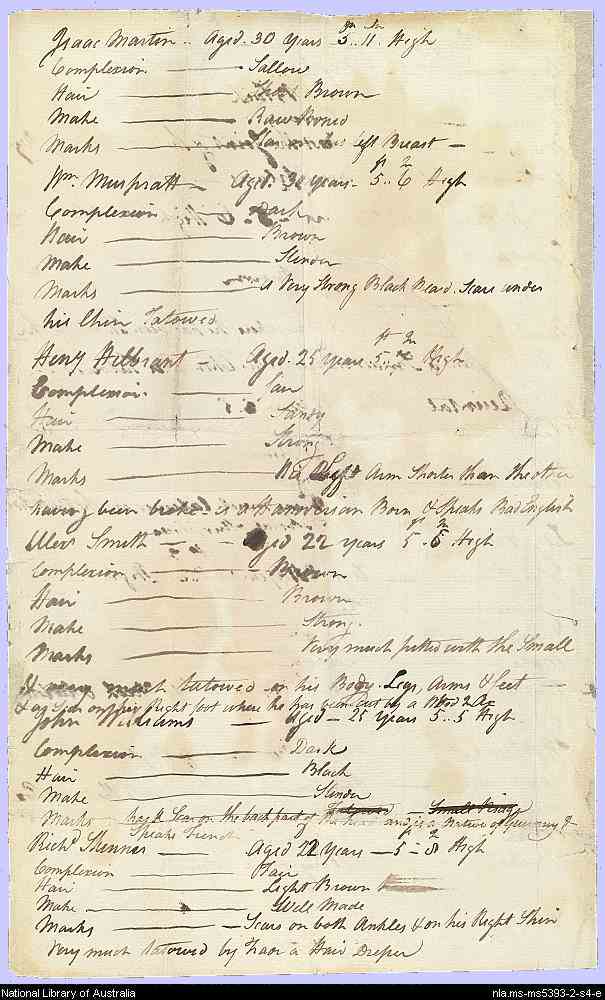 Isaac Martin.. Aged. 30 Years 5..11. High
Complexion Sallow
Hair Brown
Make Raw boned
Marks Star left Breast
Wm. Muspratt Aged. 30 years. 5..6 High
Complexion Dark
Hair Brown
Make Slender
Marks a Very Strong Black Beard. Scars under
his Chin Tatowed
Heny Hilbrant Aged. 25 Years 5..7 High
Complexion Fair
Hair Sandy
Make Strong
Marks His Left Arm Shorter than the other
having been broke is a Hanoverian Born & Speaks Bad English
Alexr Smith Aged 22 years 5.5 High
Complexion Brown
Hair Brown
Make Strong.
Marks Very much pitted with the Small
much tatowed on his Body. Legs, Arms & feet
on his Right foot where he has been cut by a Wood Ax
John Williams Aged 25 Years 5..5 High
Complexion Dark
Hair Black
Make Slender
Marks has a Scar on the back part of his head and is a Native of Guernsey &
Speaks French
Richd Skinner Aged 22 Years 5 8 High
Complexion Fair
Hair Light Brown
Make Well Made
Marks Scars on both Ankles & on his Right Shin
Very much tatowed by Trade a Hair Dresser
National Library of Australia nla.ms-ms5393-2-s4-e